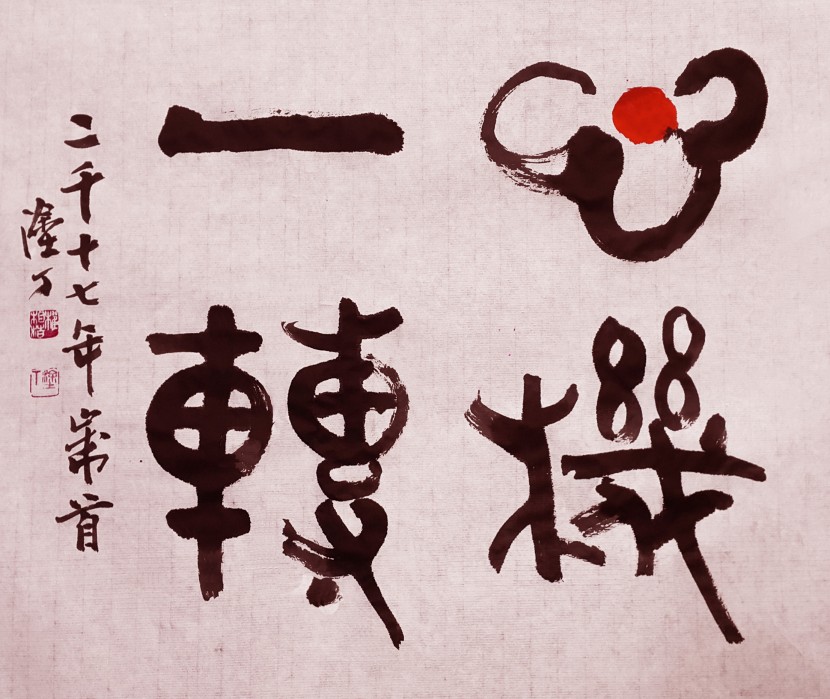 心機
一轉
二千十七年歲首